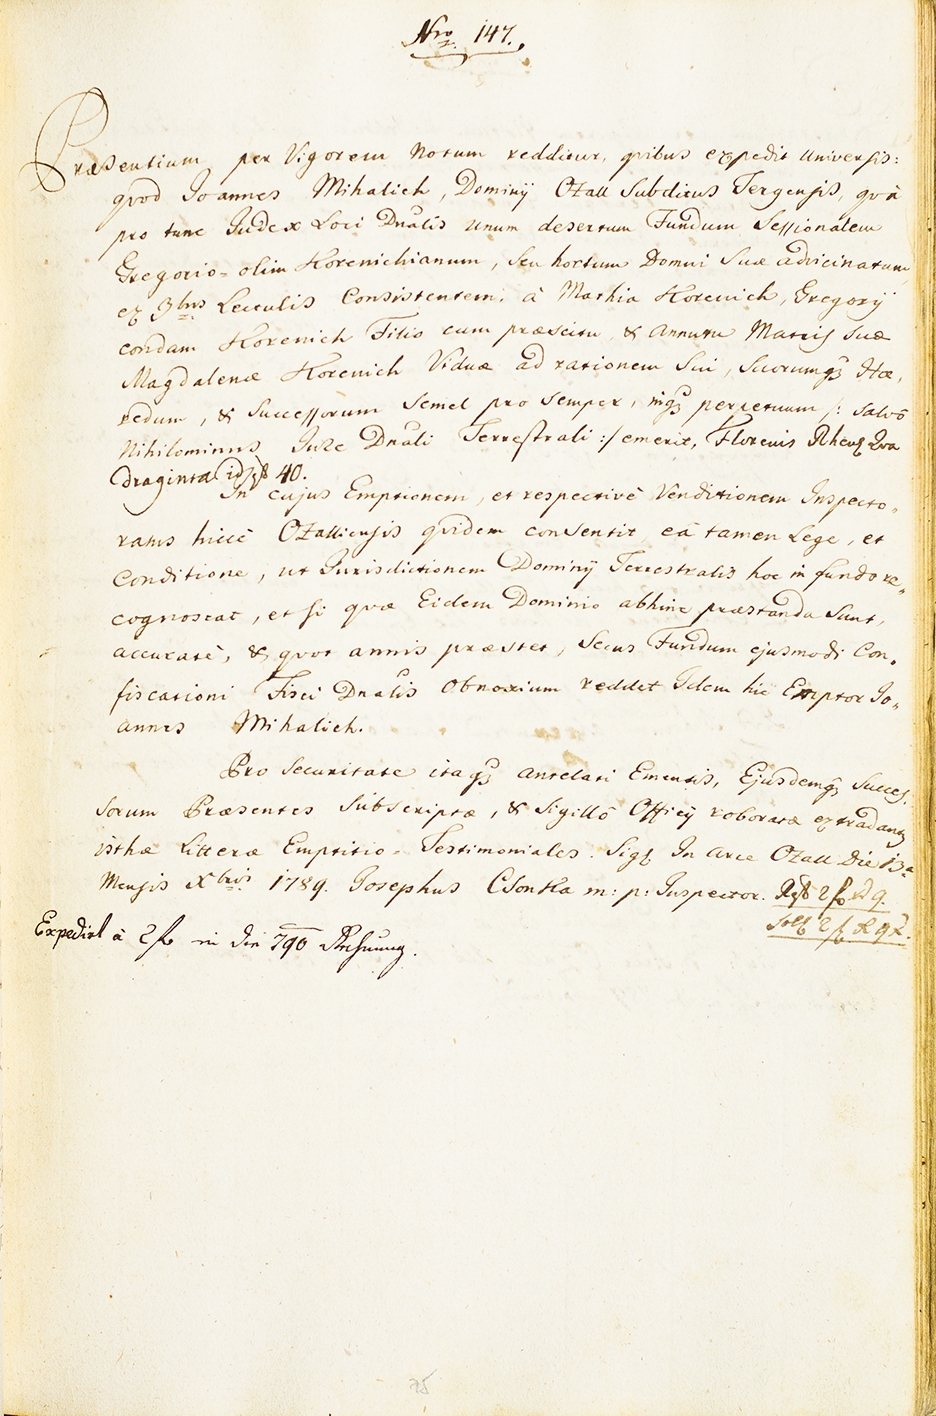 Nro 147.
Præsentium per Vigorem Notum redditur, quibus expedit Universis:
quod Joannes Mihalich, Dominÿ Ozall Subditus Tergensis, quà
pro tunc Judex Loci Dnalis unum desertum Fundum Sessionalem
Gregorio=olim Horenichianum, seu hortum Domui Suæ advicinatum
ex 3bus Leculis Consistentem, à Mathia Horenich, Gregorÿ
condam Horenich Filio cum præscitu, & Annutu Matris Suæ
Magdalenæ Horenich Viduæ ad rationem Sui, Suorumq Hæ,
redum, & Successorum Semel pro Semper, inq perpetuum /: salvò
Nihilominus Jure Dnali Terrestrali :/ emerit, Florenis Rhen Qua
draginta id 40.
In cujus Emptionem, et respectivè Venditionem Inspecto,,
ratus hicce Ozalliensis quidem consentit, eâ tamen Lege, et
Conditione, ut Jurisdictionem Dominÿ Terrestralis hoc in fundo re,,
cognoscat, et si quæ Eidem Dominio abhinc præstanda sunt,
accuratè, & quot annis præstet, Secus Fundum ejusmodi Con,,
fiscationi Fisci Dnalis obnoxium reddet Idem hic Emptor Jo,,
annes Mihalich.
Pro Securitate itaq antelati Ementis, Ejusdemq Succes,
sorum Præsentes subscriptæ, & Sigillô Officÿ roboratæ extradantur
isthæ Litteræ Emptitio=Testimoniales. Sig In Arce Ozall Die 13a
Mensis Xbris 1789. Josephus Csonka m: p: Inspector. 2 f 9.
2 f 9 x.
Expedirt à 2 f in die 790 Rechnung.
75